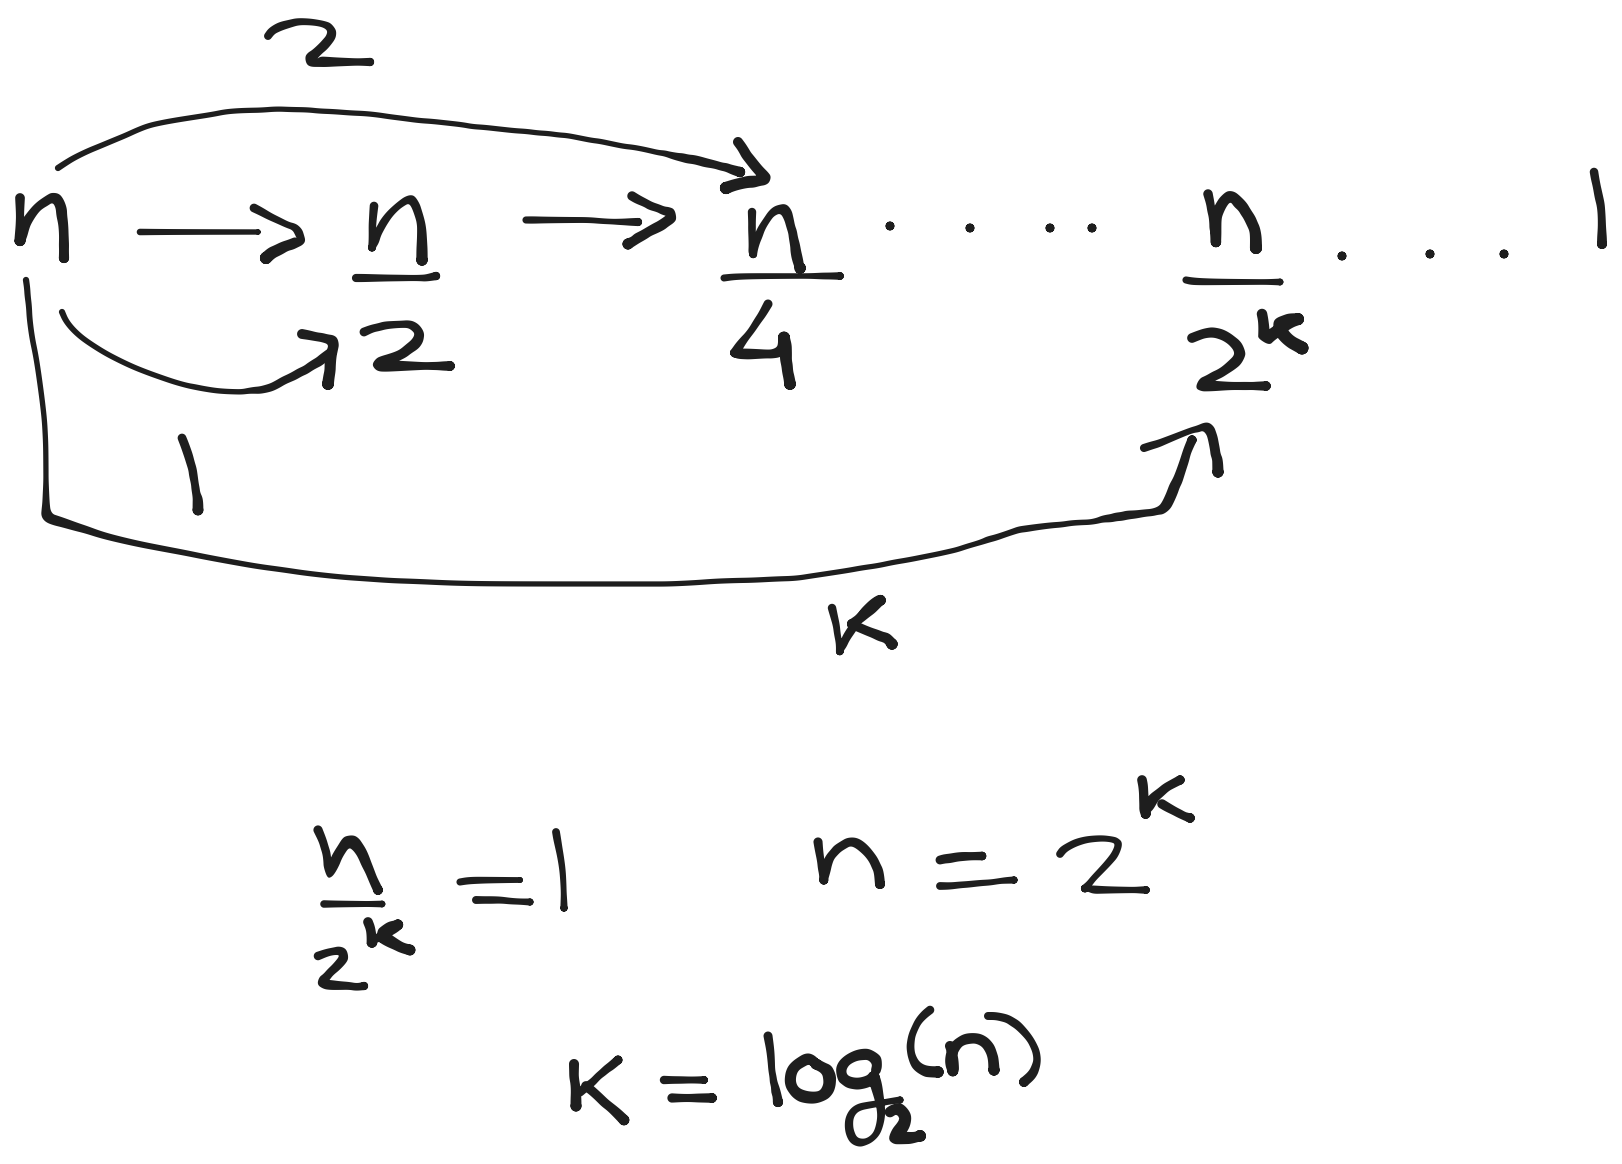 2
n → n/2 → n/4 . . . . n/2^k . . . 1
1
k
n/2^k = 1 n = 2^k
k = log₂(n)